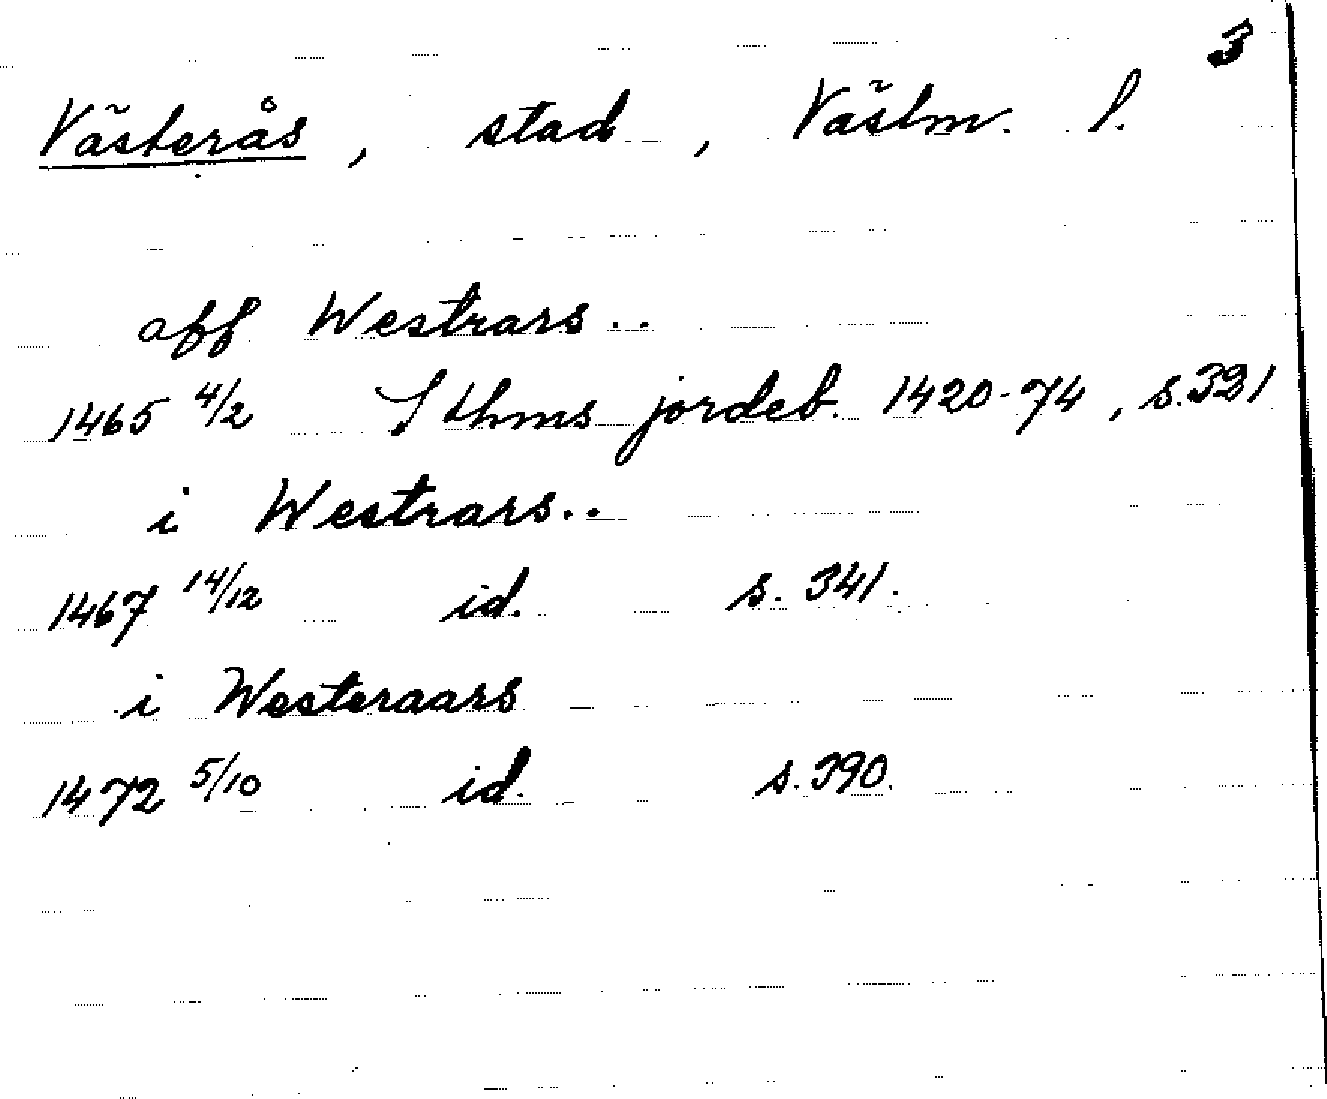 3
Västerås, stad, Västm. l.
aff Westrars..
1465 4/2 Sthms jordeb. 1420-74, s.321
i Westrars..
1467 14/12 id. s. 341.
i Westeraars
1472 5/10 id. s.390.